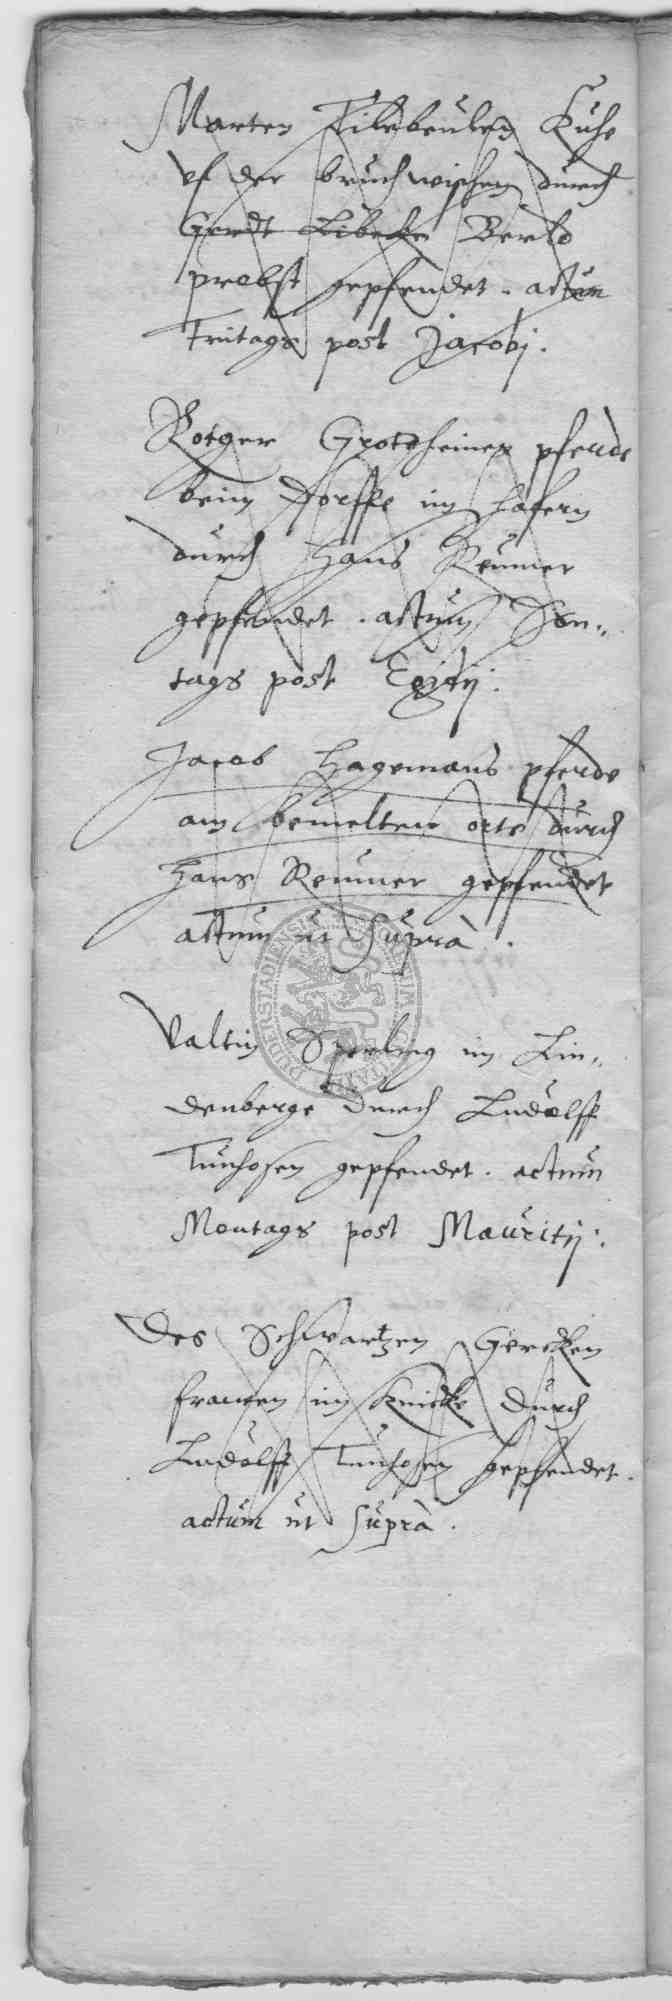 Marten Filebeulen Kuhe
uf der bruchwischen durch
Gerdt Libecke Berld
probst gepfendet. actum
Freitags post Jacobj.
Rotger Grotheinen pferde
beim Dorffe im hafern
durch Hans Reumer
gepfendet. actum Son„
tags post Egidij.
Jacob Hagemans pferde
am bemelten orte durch
Hans Reumer gepfendet
actum ut Suprà.
Valtin Sperling im Lin„
denberge durch Ludolff
Tunhosen gepfendet. actum
Montags post Mauritij.
Des Schwartzen Gercken
frawen im Knicke durch
Ludolff Tunhosen gepfendet.
actum ut Suprà.